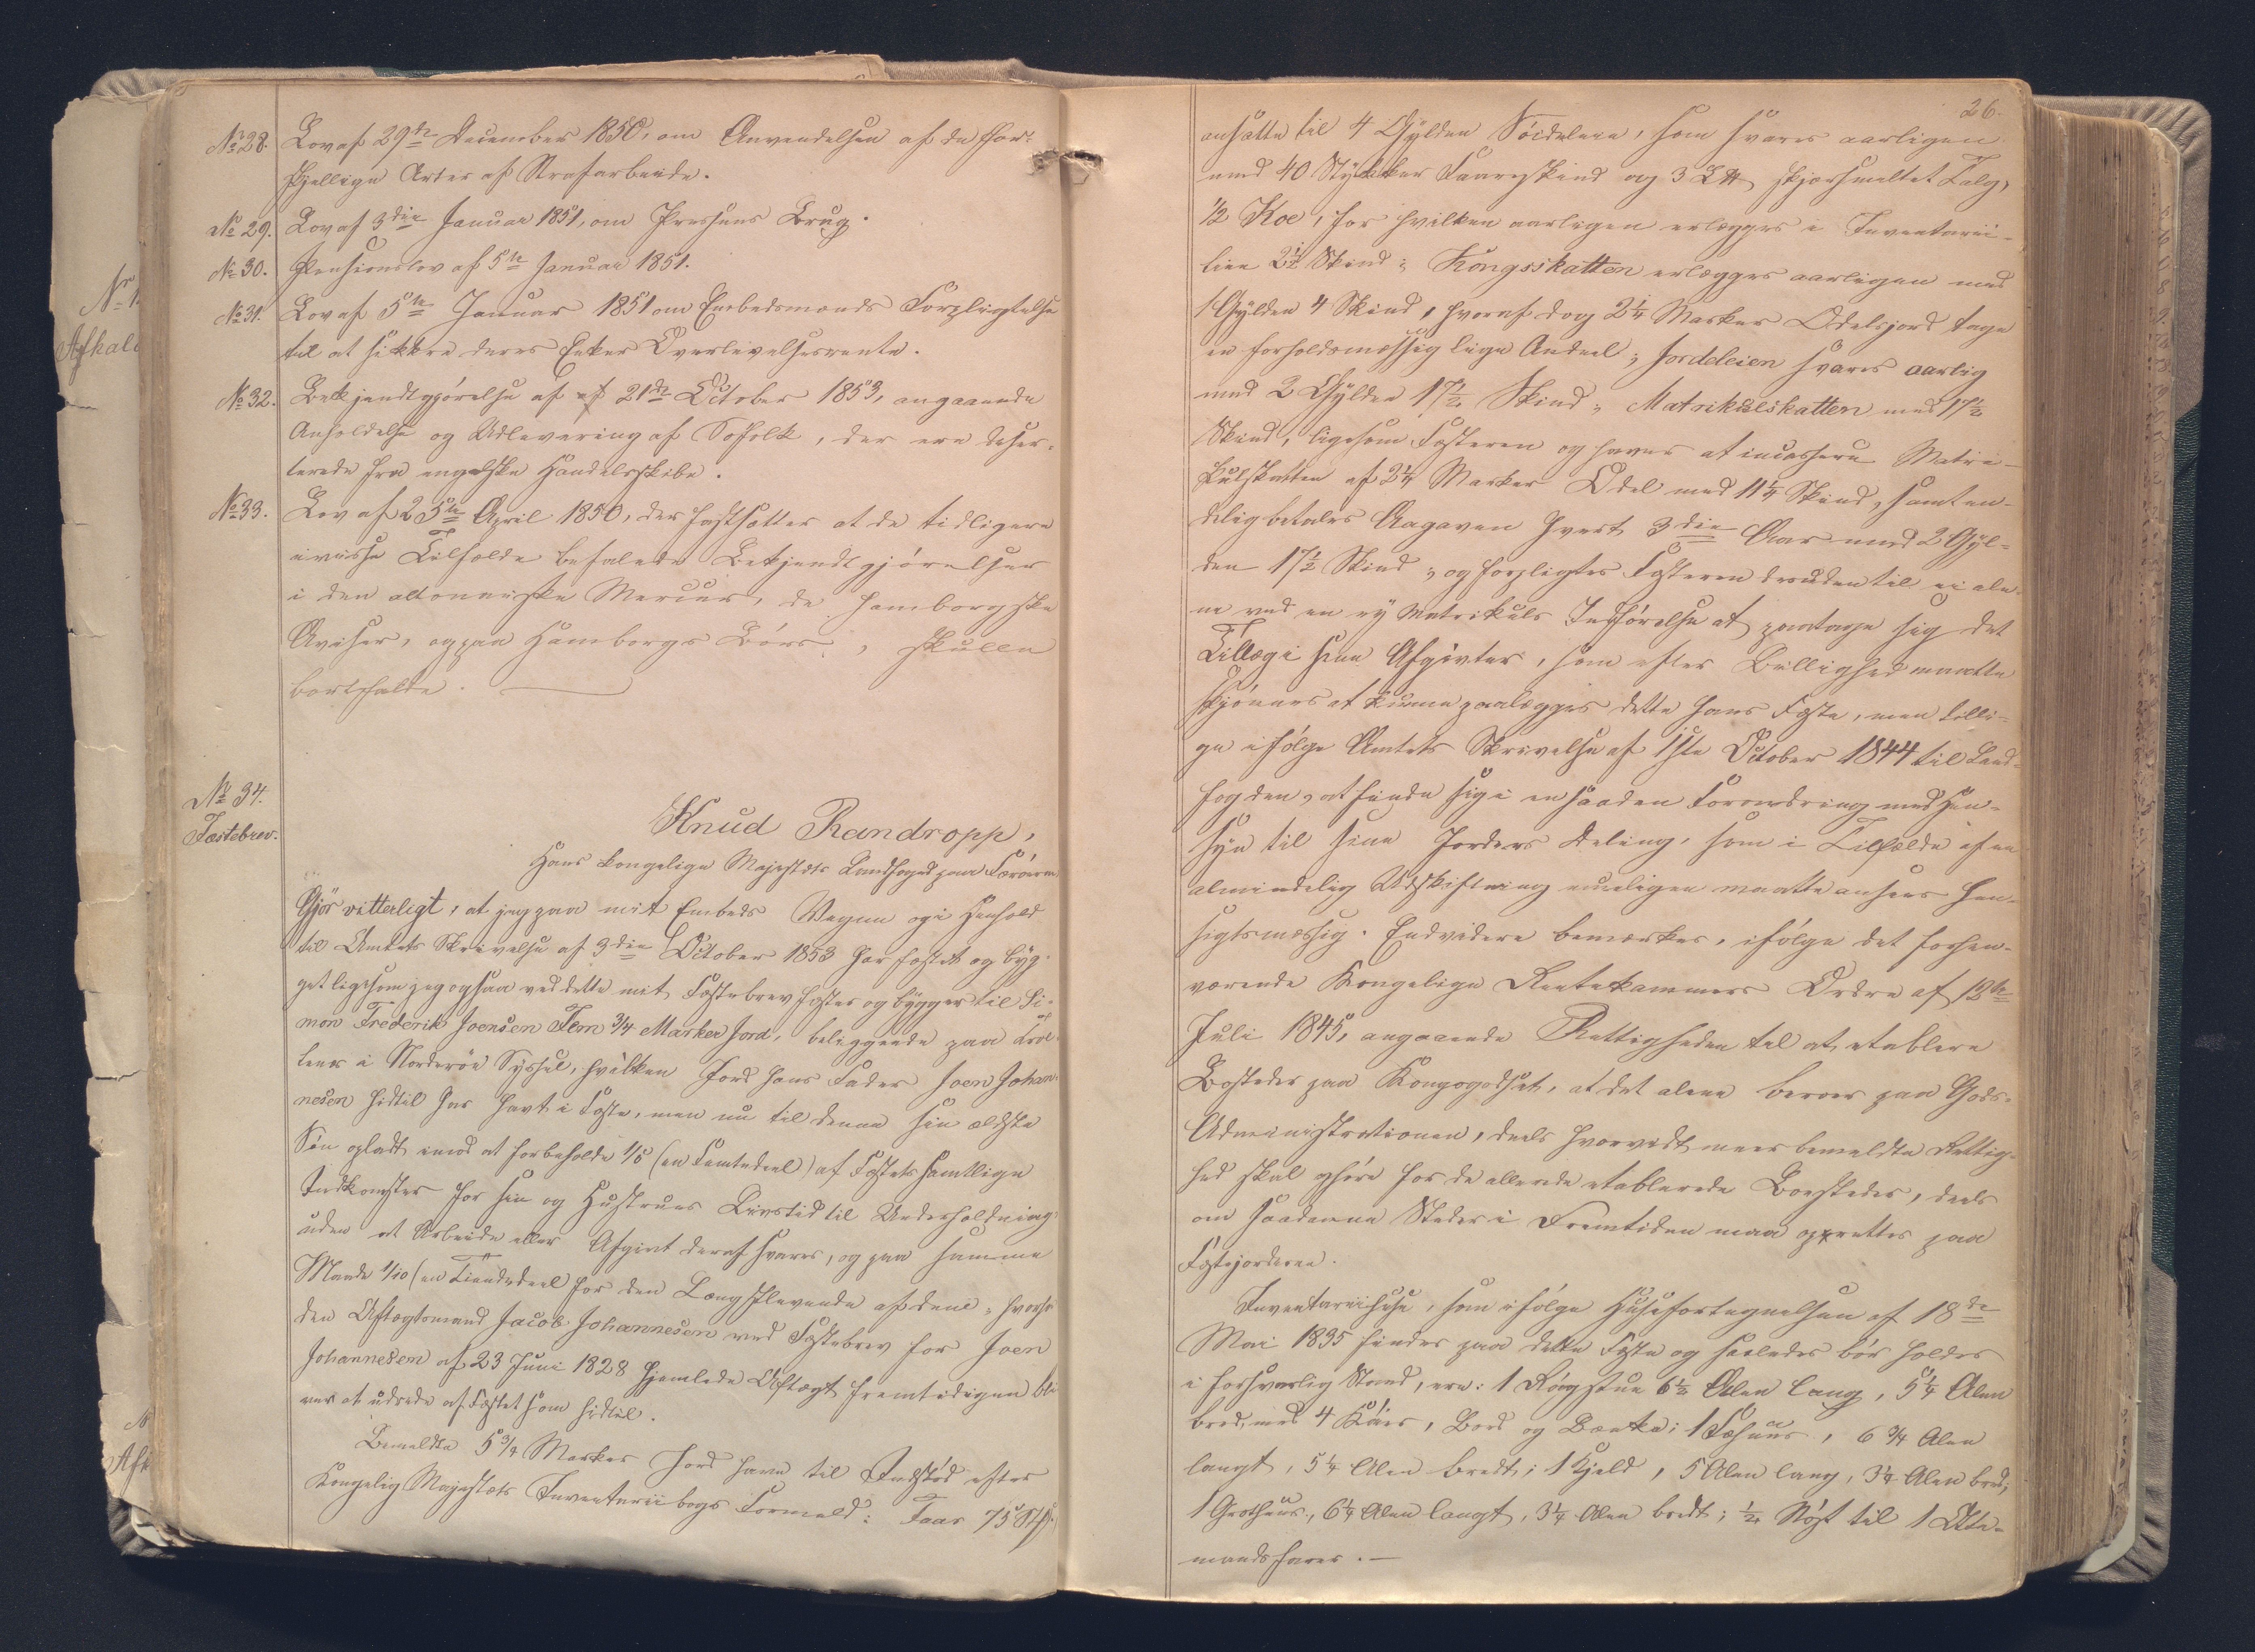 No 28. Lov af 29de December 1850, om Anvendelsen af de for-
skjellige Arter af Strafarbeide.
No 29. Lov af 3die Januar 1851, om Pressens Brug.
No 30. Pensionslov af 5te Januar 1851.
No 31. Lov af 5te Januar 1851 om Embedsmænds Forpligtelse
til at sikkre deres Enker Overlevelsesrente.
No 32. Bekjendtgjörelse af 21de October 1853, angaaende
Anholdelse og Udlevering af Söfolk, der ere deser-
terede fra engelske Handelsskibe.
No 33. Lov af 25te April 1850, der fastsætter at de tidligere
i visse Tilfælde befalede Bekjendtgjörelser
i den altonaiske Mercur, de hamborgske
Aviser, og paa Hamborgs Börs, skulle
bortfalde.
No 34.
Fæstebrev.
Knud Randropp,
Hans kongelige Majestæts Landfoged paa Færöerne
Gjör vitterligt, at jeg paa mit Embeds Vegne og i Henhold
til Amtets Skrivelse af 3die October 1853 har fæstet og byg-
get ligesom jeg ogsaa ved dette mit Fæstebrev fæster og bygger til Si-
mon Frederik Joensen Fem 3/4 Marker Jord, beliggende paa
i Norderöe Syssel, hvilken Jord hans Fader Joen Johan-
nesen hidtil har havt i Fæste, men nu til denne sin ældste
Sön opladt imod at forbeholde 1/5 (en Femtedeel) af Fæstets samtlige
Indkomster for sin og Hustrues Livstid til Underholdning,
uden at Arbeide eller Afgivt deraf svares, og paa samme
Maade 1/10 (en Tiendedeel for den Længstlevende af dem; hvorhos
den Aftægtsmand Jacob Johannesen ved Fæstebrev for Joen
Johannesen af 23 Juni 1828 hjemlede Aftægt fremtidigen bli-
ver at udrede af Fæstet som hidtil.
Bemeldte 5 3/4 Marker Jord have til Indstöd efter
Kongelig Majestæts Inventarii bogs Formeld: Faar 75 St
26.
ansatte til 4 Gylden Söideleie, som svares aarligen
med 40 Stykker Faareskind og 3 skjærsmeltet Talg,
1/2 Koe, for hvilken aarligen erlægges i Inventarii-
leie 2 1/2 Skind; Kongsskatten erlægges aarligen med
1 Gylden 4 Skind, hvoraf dog 2 1/4 Marker Odelsjord tage
en forholdsmæssig lige Andeel; Jordeleien svares aarlig
med 2 Gylden 17 1/2 Skind; Matrikulskatten med 17 1/2
Skind, ligesom Fæsteren og haver at incassere Matri-
kulskatten af 2 1/4 Marker Odel med 11 1/4 Skind, samt en-
delig betales Aagaven hvert 3die Aar med 2 Gyl-
den 17 1/2 Skind; og forpligtes Fæsteren desuden til ei ale-
ne ved en ny Matrikuls Indförelse at paatage sig det
Tillæg i sine Afgivter, som efter Billighed maatte
skjönnes at kunne paalægges dette hans Fæste, men tilli-
ge ifölge Amtets Skrivelse af 1ste October 1844 til Land-
fogden, at finde sig i en saaden Forandring med Hen-
syn til sine Jorders Deling, som i Tilfælde af en
almindelig Udskiftning muligen maatte ansees hen-
sigtsmæssig. Endvidere bemærkes, ifölge det forhen-
værende Kongelige Rentekammers Ordre af 12te
Juli 1845, angaaende Rettigheden til at etablere
Bosteder paa Kongsgodset, at det alene beroer paa Gods-
Administrationen, deels hvorvidt meer bemeldte Rettig-
hed skal ophöre for de allerede etablerede Bosteder, deels
om saadanne Steder i Fremtiden maa oprettes paa
Fæstejorderne.
Inventariihuse, som ifölge Huusefortegnelsen af 18de
Mai 1835 findes paa dette Fæste og saaledes bör holdes
i forsvarlig Stand, ere: 1 Rögstue 6 1/2 Alen lang, 5 1/4 Alen
bred, med 4 Köier, Bord og Bænke; 1 Fæhuus, 6 3/4 Alen
langt, 5 1/4 Alen bredt; 1 Kjeld, 5 Alen lang, 3 1/4 Alen bred;
1 Grothuus, 6 1/4 Alen langt, 3 1/4 Alen bredt; 1/2 Nöst til 1 Otte-
mandsfarer.